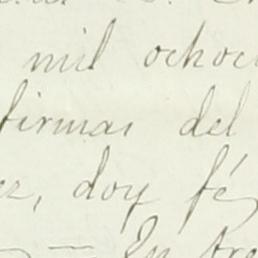 mil ochoc
firmas del
ez, doy fé
— En